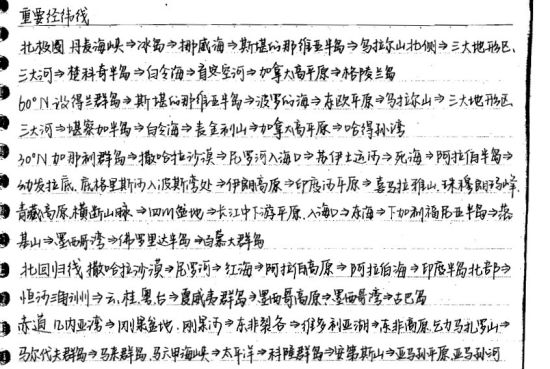 重要经纬线
北极圈 丹麦海峡⇒冰岛⇒挪威海⇒斯堪的那维亚半岛⇒乌拉尔山北侧⇒三大地形区、
三大河⇒楚科奇半岛⇒白令海⇒育空河⇒加拿大高平原⇒格陵兰岛
60°N 设得兰群岛⇒斯堪的那维亚半岛⇒波罗的海⇒东欧平原⇒乌拉尔山⇒三大地形区
三大河⇒堪察加半岛⇒白令海⇒麦金利山⇒加拿大高平原⇒哈得孙湾
30°N 加那利群岛⇒撒哈拉沙漠⇒尼罗河入海口⇒苏伊士运河⇒死海⇒阿拉伯半岛⇒
幼发拉底、底格里斯河入波斯湾处⇒伊朗高原⇒印度河平原⇒喜马拉雅山、珠穆朗玛峰、
青藏高原、横断山脉⇒四川盆地⇒长江中下游平原、入海口⇒东海⇒下加利福尼亚半岛⇒落
基山⇒墨西哥湾⇒佛罗里达半岛⇒百慕大群岛
北回归线 撒哈拉沙漠⇒尼罗河⇒红海⇒阿拉伯高原⇒阿拉伯海⇒印度半岛北部⇒
恒河三角洲⇒云、桂、粤、台⇒夏威夷群岛⇒墨西哥高原⇒墨西哥湾⇒古巴岛
赤道 几内亚湾⇒刚果盆地、刚果河⇒东非裂谷⇒维多利亚湖⇒东非高原、乞力马扎罗山⇒
马尔代夫群岛⇒马来群岛、马六甲海峡⇒太平洋⇒科隆群岛⇒安第斯山⇒亚马孙平原、亚马孙河